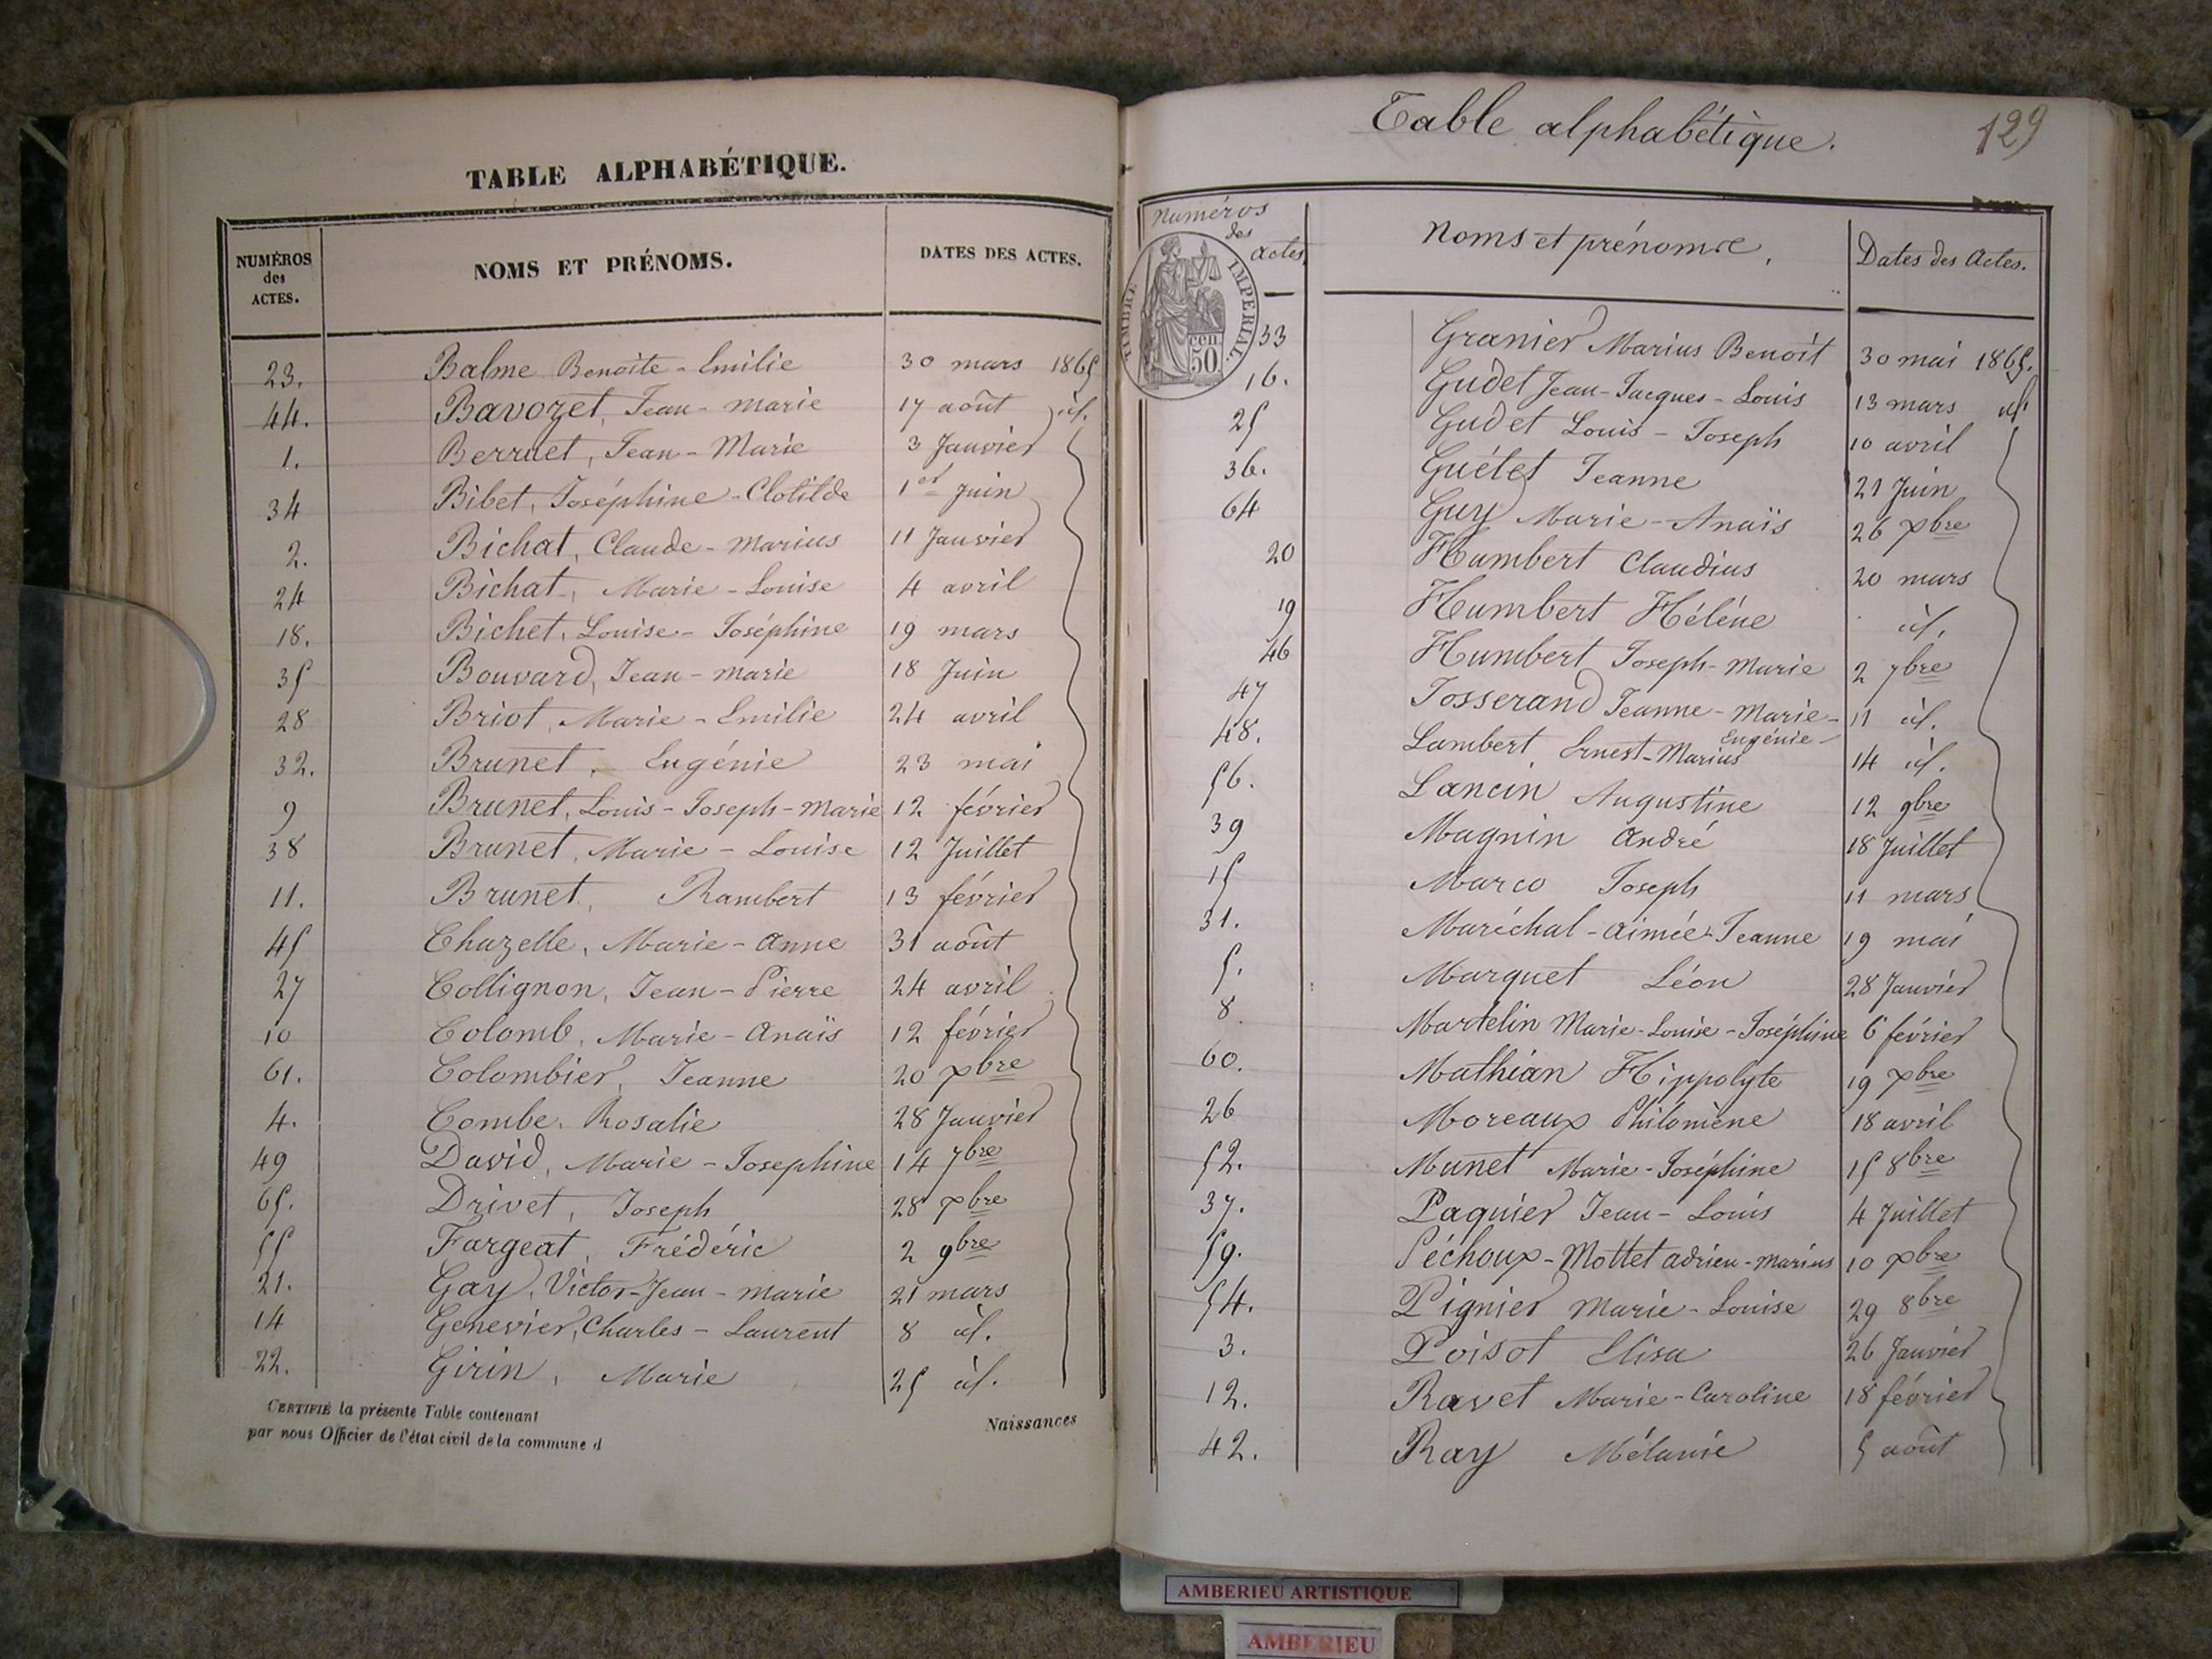 TABLE ALPHABÉTIQUE.
NUMÉROS des ACTES. NOMS ET PRÉNOMS. DATES DES ACTES.
23. Balme Benoite - Emilie 30 mars 1865
44. Bavozet, Jean - marie 17 août id.
1. Berruet, Jean - Marie 3 Janvier
34 Bibet, Joséphine - Clotilde 1er Juin
2. Bichat, Claude - Marius 11 Janvier
24 Bichat, Marie - Louise 4 avril
18. Bichet, Louise - Joséphine 19 mars
35 Bouvard, Jean - marie 18 Juin
28 Briot, Marie - Emilie 24 avril
32. Brunet, Eugénie 23 mai
9 Brunet, Louis - Joseph - Marie 12 février
38 Brunet, Marie - Louise 12 Juillet
11. Brunet, Rambert 13 février
45 Chazelle, Marie - Anne 31 août
27 Collignon, Jean - Pierre 24 avril
10 Colomb, Marie - Anaïs 12 février
61. Colombier, Jeanne 20 xbre
4. Combe, Rosalie 28 Janvier
49 David, Marie - Josephine 14 7bre
65. Drivet, Joseph 28 xbre
55 Fargeat, Frédéric 2 9bre
21. Gay, Victor - Jean - marie 21 mars
14 Genevier, Charles - Laurent 8 id.
22. Girin, Marie 25 id.
CERTIFIÉ la présente Table contenant Naissances
par nous Officier de l'état civil de la commune d
Table alphabétique. 129
Numéros des actes Noms et prénoms, Dates des Actes.
TIMBRE IMPERIAL.
50 cen
33 Granier Marius Benoit 30 mai 1865.
16. Gudet Jean - Jacques - Louis 13 mars id
25 Gudet Louis - Joseph 10 avril
36. Guétet Jeanne 21 Juin
64 Guy Marie - Anaïs 26 xbre
20 Humbert Claudius 20 mars
19 Humbert Héléne id.
46 Humbert Joseph - Marie 2 7bre
47 Josserand Jeanne - Marie - Eugénie - 11 id.
48. Lambert Ernest - Marius 14 id.
56. Lancin Augustine 12 9bre
39 Magnin André 18 Juillet
15 Marco Joseph 11 mars
31. Maréchal - Aimée - Jeanne 19 mai
5. Marquet Léon 28 Janvier
8 Martelin Marie - Louise - Joséphine 6 février
60. Mathian Hippolyte 19 xbre
26 Moreaux Philomène 18 avril
52. Munet Marie - Joséphine 15 8bre
37. Paquier Jean - Louis 4 Juillet
59. Péchoux - Mottet adrien - marius 10 xbre
54. Pignier Marie - Louise 29 8bre
3. Poisot Elisa 26 Janvier
12. Ravet Marie - Caroline 18 février
42. Ray Mélanie 5 août
AMBERIEU ARTISTIQUE
AMBERIEU